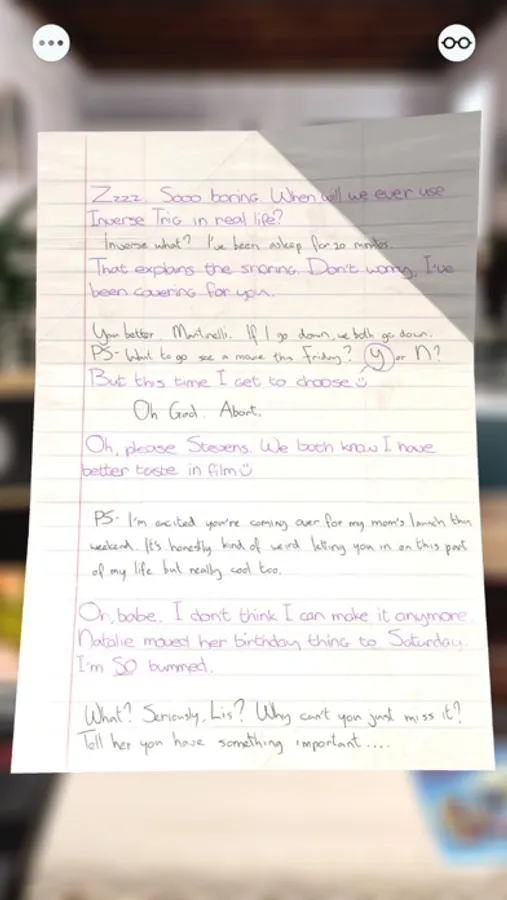 Zzzz. Sooo boring. When will we ever use
Inverse Trig in real life?
Inverse what? I've been asleep for 20 minutes.
That explains the snoring. Don't worry, I've
been covering for you.
You better, Martinelli. If I go down, we both go down.
PS- Want to go see a movie this Friday? Y or N?
But this time I get to choose☺
Oh God. Abort.
Oh, please Stevens. We both know I have
better taste in film☺
PS- I'm excited you're coming over for my mom's launch this
weekend. It's honestly kind of weird letting you in on this part
of my life but really cool too.
Oh, babe. I don't think I can make it anymore.
Natalie moved her birthday thing to Saturday.
I'm SO bummed.
What? Seriously, Lis? Why can't you just miss it?
Tell her you have something important....